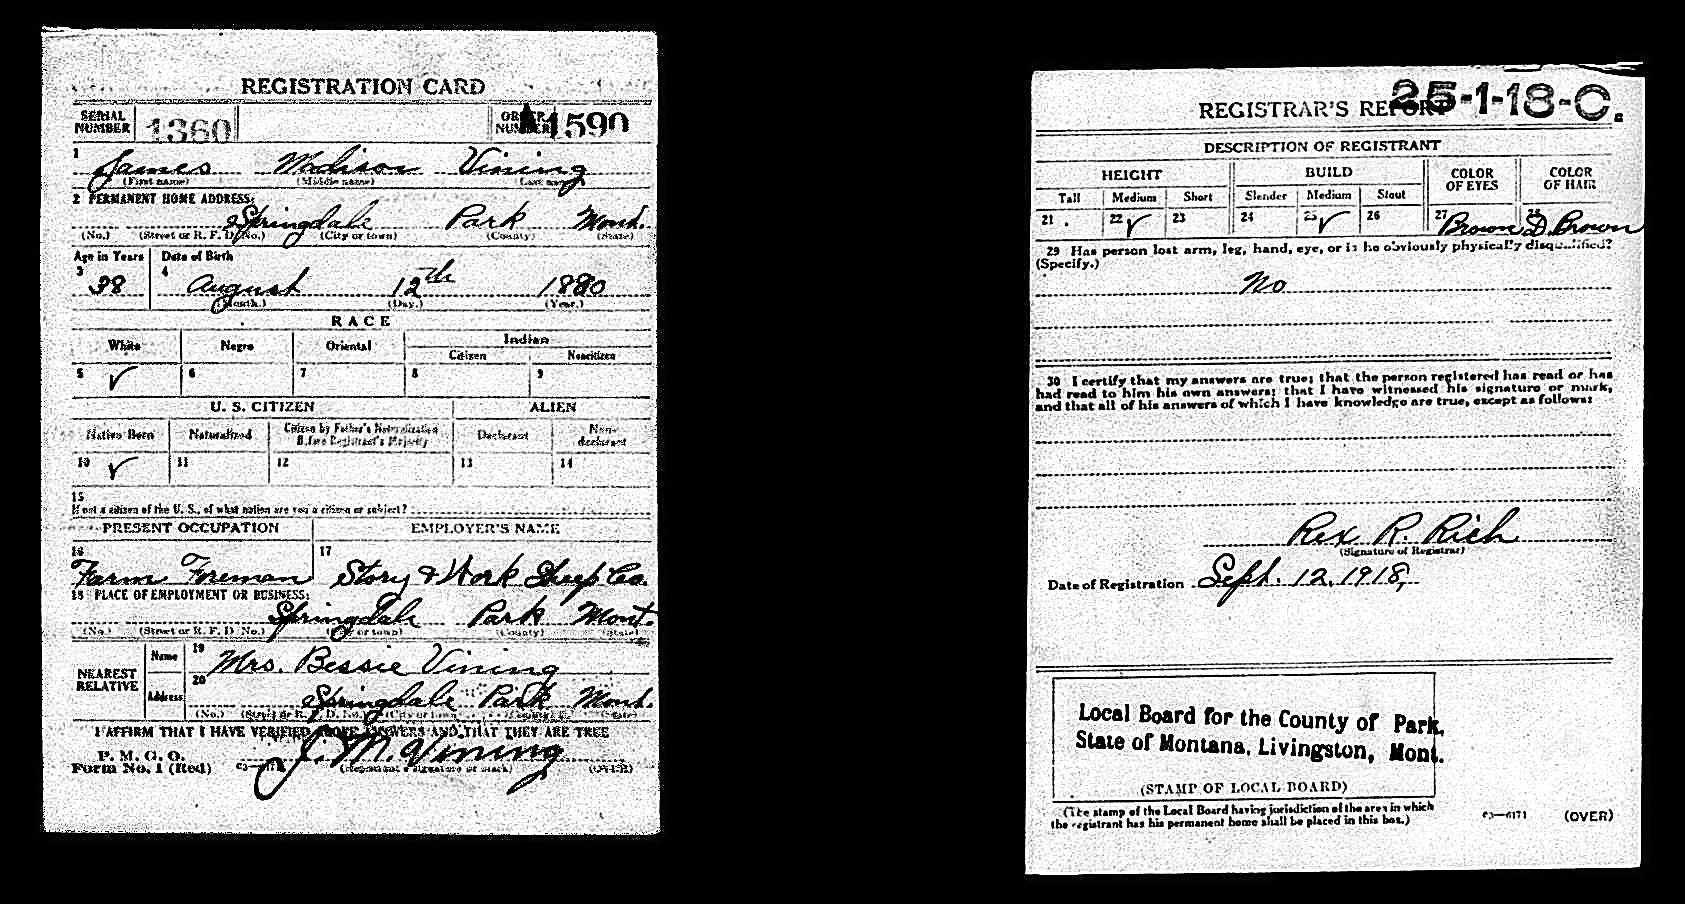 REGISTRATION CARD
SERIAL NUMBER 1360 ORDER NUMBER A1590
1 James Madison Vining
(First name) (Middle name) (Last name)
2 PERMANENT HOME ADDRESS:
Springdale Park Mont.
(No.) (Street or R. F. D. No.) (City or town) (County) (State)
Age in Years Date of Birth
3 38 4 August 12th 1880
(Month.) (Day.) (Year.)
RACE
White Negro Oriental Indian
Citizen Noncitizen
5 ✓ 6 7 8 9
U. S. CITIZEN ALIEN
Native Born Naturalized Citizen by Father's Naturalization Before Registrant's Majority Declarant Non-declarant
10 ✓ 11 12 13 14
15
If not a citizen of the U. S., of what nation are you a citizen or subject?
PRESENT OCCUPATION EMPLOYER'S NAME
16 Farm Foreman 17 Story & Work Sheep Co.
18 PLACE OF EMPLOYMENT OR BUSINESS:
Springdale Park Mont.
(No.) (Street or R. F. D. No.) (City or town) (County) (State)
NEAREST RELATIVE Name 19 Mrs. Bessie Vining
Address 20 Springdale Park Mont.
(No.) (Street or R. F. D. No.) (City or town) (County) (State)
I AFFIRM THAT I HAVE VERIFIED ABOVE ANSWERS AND THAT THEY ARE TRUE
P. M. G. O.
Form No. 1 (Red) J. M. Vining
(Registrant's signature or mark) (OVER)
25-1-18-C.
REGISTRAR'S REPORT
DESCRIPTION OF REGISTRANT
HEIGHT BUILD COLOR OF EYES COLOR OF HAIR
Tall Medium Short Slender Medium Stout
21 22 ✓ 23 24 25 ✓ 26 27 Brown 28 D. Brown
29 Has person lost arm, leg, hand, eye, or is he obviously physically disqualified?
(Specify.)
No
30 I certify that my answers are true; that the person registered has read or has
had read to him his own answers; that I have witnessed his signature or mark,
and that all of his answers of which I have knowledge are true, except as follows:
Rex R. Rich
(Signature of Registrar)
Date of Registration Sept. 12, 1918,
Local Board for the County of Park,
State of Montana, Livingston, Mont.
(STAMP OF LOCAL BOARD)
(The stamp of the Local Board having jurisdiction of the area in which
the registrant has his permanent home shall be placed in this box.)
03—6171 (OVER)